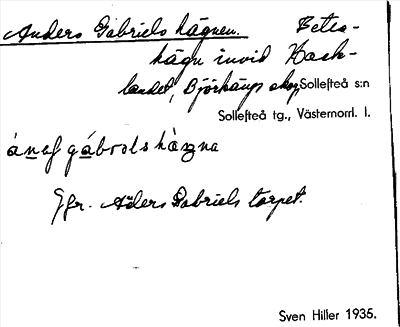 Anders Gabriels hägnen. Betes-
hägn invid Hack-
landet, Björkäup skog, Sollefteå s:n
Sollefteå tg., Västernorrl. l.
Jfr. Anders Gabriels torpet.
Sven Hiller 1935.